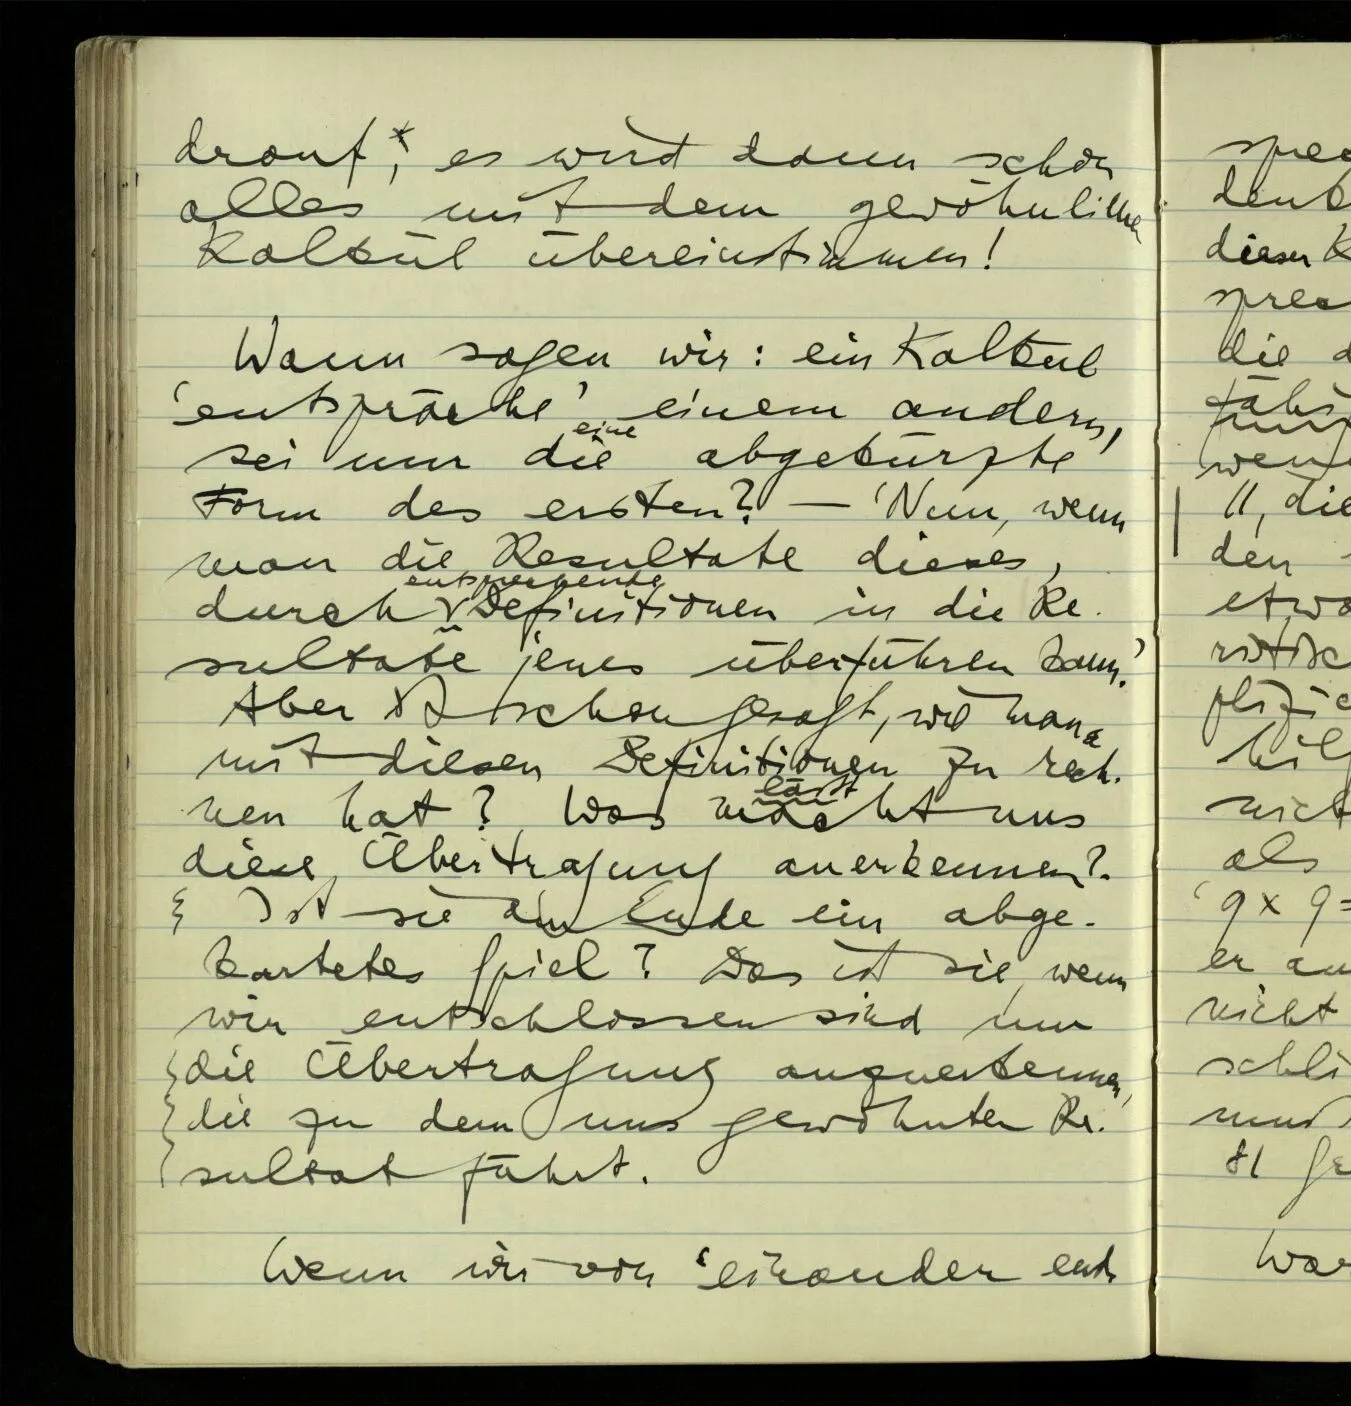 drauf, es wird dann schon
alles mit dem gewöhnlichen
Kalkül übereinstimmen!
Wann sagen wir: ein Kalkul
‘entspräche’ einem andern,
eine
sei nur die abgekürzte
Form des ersten? — ‘Nun, wenn
man die Resultate dieses,
entsprechende
durch Definitionen in die Re-
sultate jenes überführen kann.’
Aber ist schon gesagt, wie man
mit diesen Definitionen zu rech-
läßt
nen hat? Was macht uns
diese Übertragung anerkennen?
Ist sie am Ende ein abge-
kartetes Spiel? Das ist sie, wenn
wir entschlossen sind nur
die Übertragung anzuerkennen,
die zu dem uns gewohnten Re-
sultat führt.
Wenn wir von ‘einander ent-
spre
denk
dieser K
spre
die
wen
11, die
den
etwa
hilf
nicht
als
‘9 x 9 =
er an
nicht
schli
mus
81 ge
War